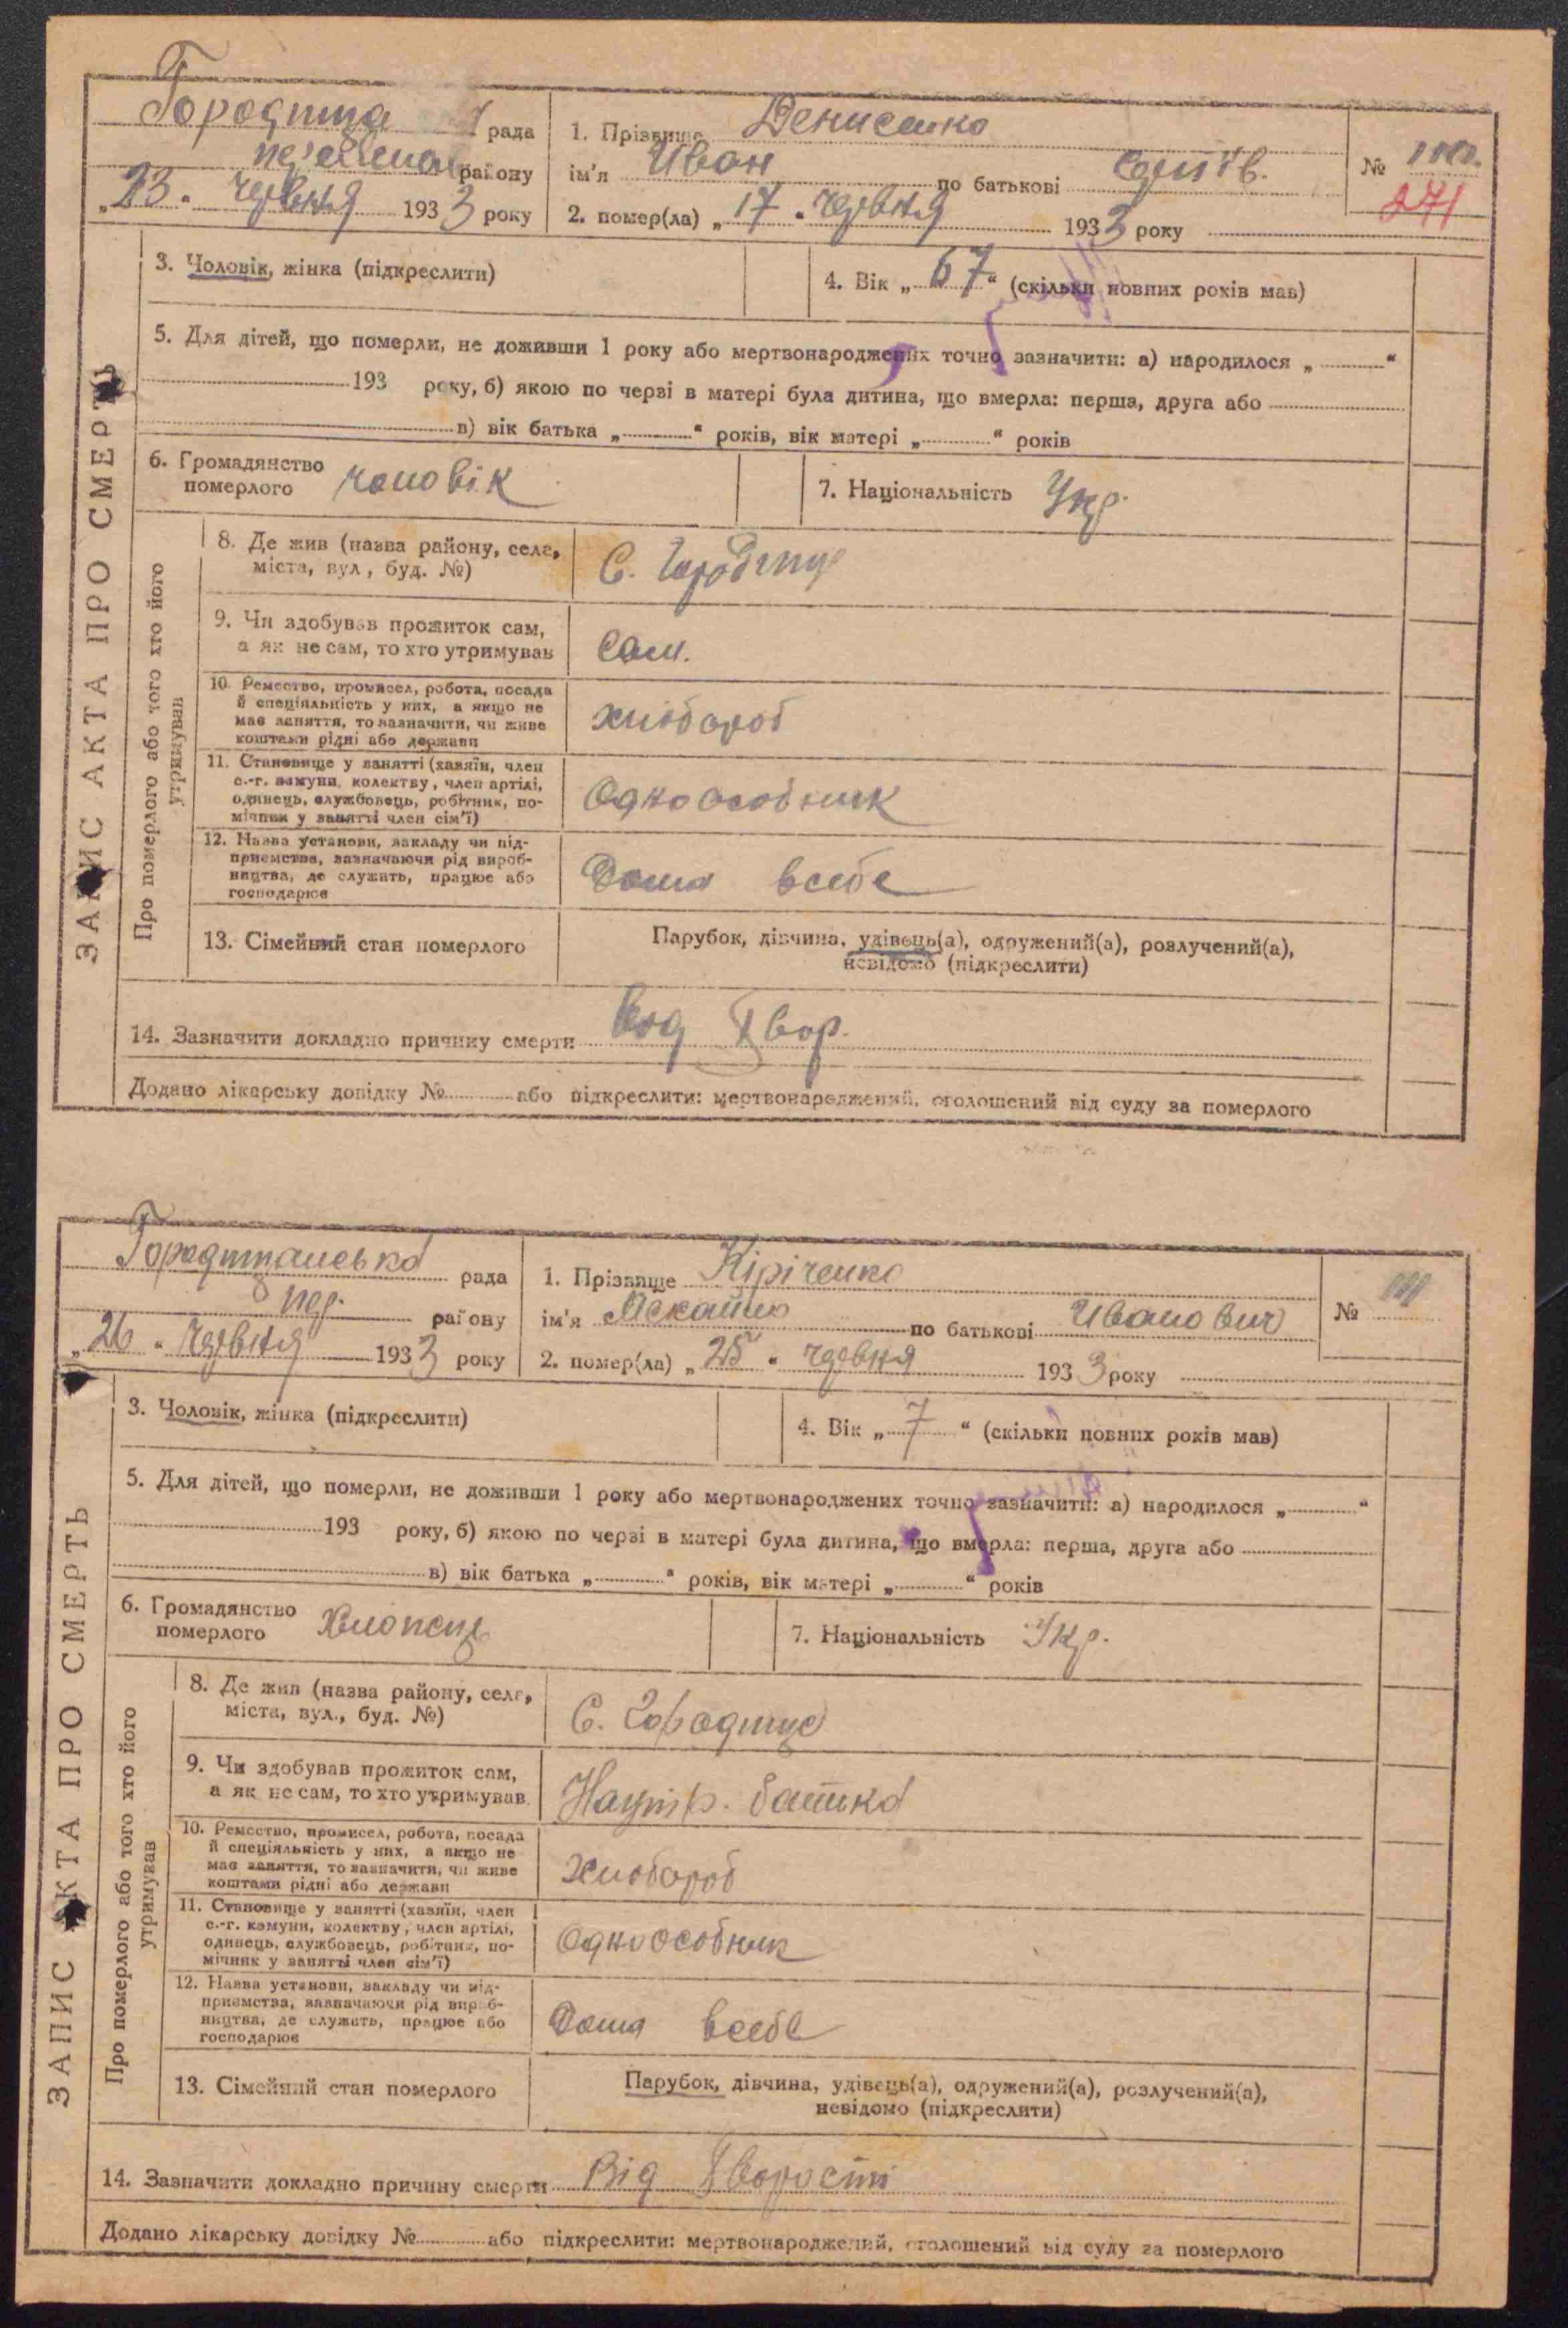 ЗАПИС АКТА ПРО СМЕРТЬ
Городища рада
району
„23“ червня 1933 року
1. Прізвище Денисенко
ім'я Иван по батькові
2. помер(ла) „17“ червня 1933 року
№
271
3. Чоловік, жінка (підкреслити)
4. Вік „67“ (скільки повних років мав)
5. Для дітей, що померли, не доживши 1 року або мертвонароджених точно зазначити: а) народилося „ “
193 року, б) якою по черзі в матері була дитина, що вмерла: перша, друга або
в) вік батька „ “ років, вік матері „ “ років
6. Громадянство
померлого чоловік
7. Національність Укр.
Про померлого або того хто його
утримував
8. Де жив (назва району, села,
міста, вул., буд. №)
С. Городище
9. Чи здобував прожиток сам,
а як не сам, то хто утримував
сам.
10. Ремество, промисел, робота, посада
й спеціяльність у них, а якщо не
має заняття, то зазначити, чи живе
коштами рідні або держави
хлібороб
11. Становище у занятті (хазяїн, член
с.-г. комуни, колектву, член артілі,
одинець, службовець, робітник, по-
мічник у занятті член сім'ї)
Одноособник
12. Назва установи, закладу чи під-
приємства, зазначаючи рід вироб-
ництва, де служить, працює або
господарює
Дома всебе
13. Сімейний стан померлого
Парубок, дівчина, удівець(а), одружений(а), розлучений(а),
невідомо (підкреслити)
14. Зазначити докладно причину смерти Вод Хвор.
Додано лікарську довідку № або підкреслити: мертвонароджений, оголошений від суду за померлого
ЗАПИС АКТА ПРО СМЕРТЬ
Городищанська рада
Пер. району
„26“ червня 1933 року
1. Прізвище Кіріченко
ім'я по батькові Иванович
2. помер(ла) „25“ червня 1933 року
№
3. Чоловік, жінка (підкреслити)
4. Вік „7“ (скільки повних років мав)
5. Для дітей, що померли, не доживши 1 року або мертвонароджених точно зазначити: а) народилося „ “
193 року, б) якою по черзі в матері була дитина, що вмерла: перша, друга або
в) вік батька „ “ років, вік матері „ “ років
6. Громадянство
померлого Хлопець
7. Національність Укр.
Про померлого або того хто його
утримував
8. Де жив (назва району, села,
міста, вул., буд. №)
С. Городище
9. Чи здобував прожиток сам,
а як не сам, то хто утримував
батька
10. Ремество, промисел, робота, посада
й спеціяльність у них, а якщо не
має заняття, то зазначити, чи живе
коштами рідні або держави
Хлібороб
11. Становище у занятті (хазяїн, член
с.-г. комуни, колектву, член артілі,
одинець, службовець, робітник, по-
мічник у занятті член сім'ї)
Одноособник
12. Назва установи, закладу чи під-
приємства, зазначаючи рід вироб-
ництва, де служить, працює або
господарює
Дома всебе
13. Сімейний стан померлого
Парубок, дівчина, удівець(а), одружений(а), розлучений(а),
невідомо (підкреслити)
14. Зазначити докладно причину смерти Від Хворости
Додано лікарську довідку № або підкреслити: мертвонароджений, оголошений від суду за померлого